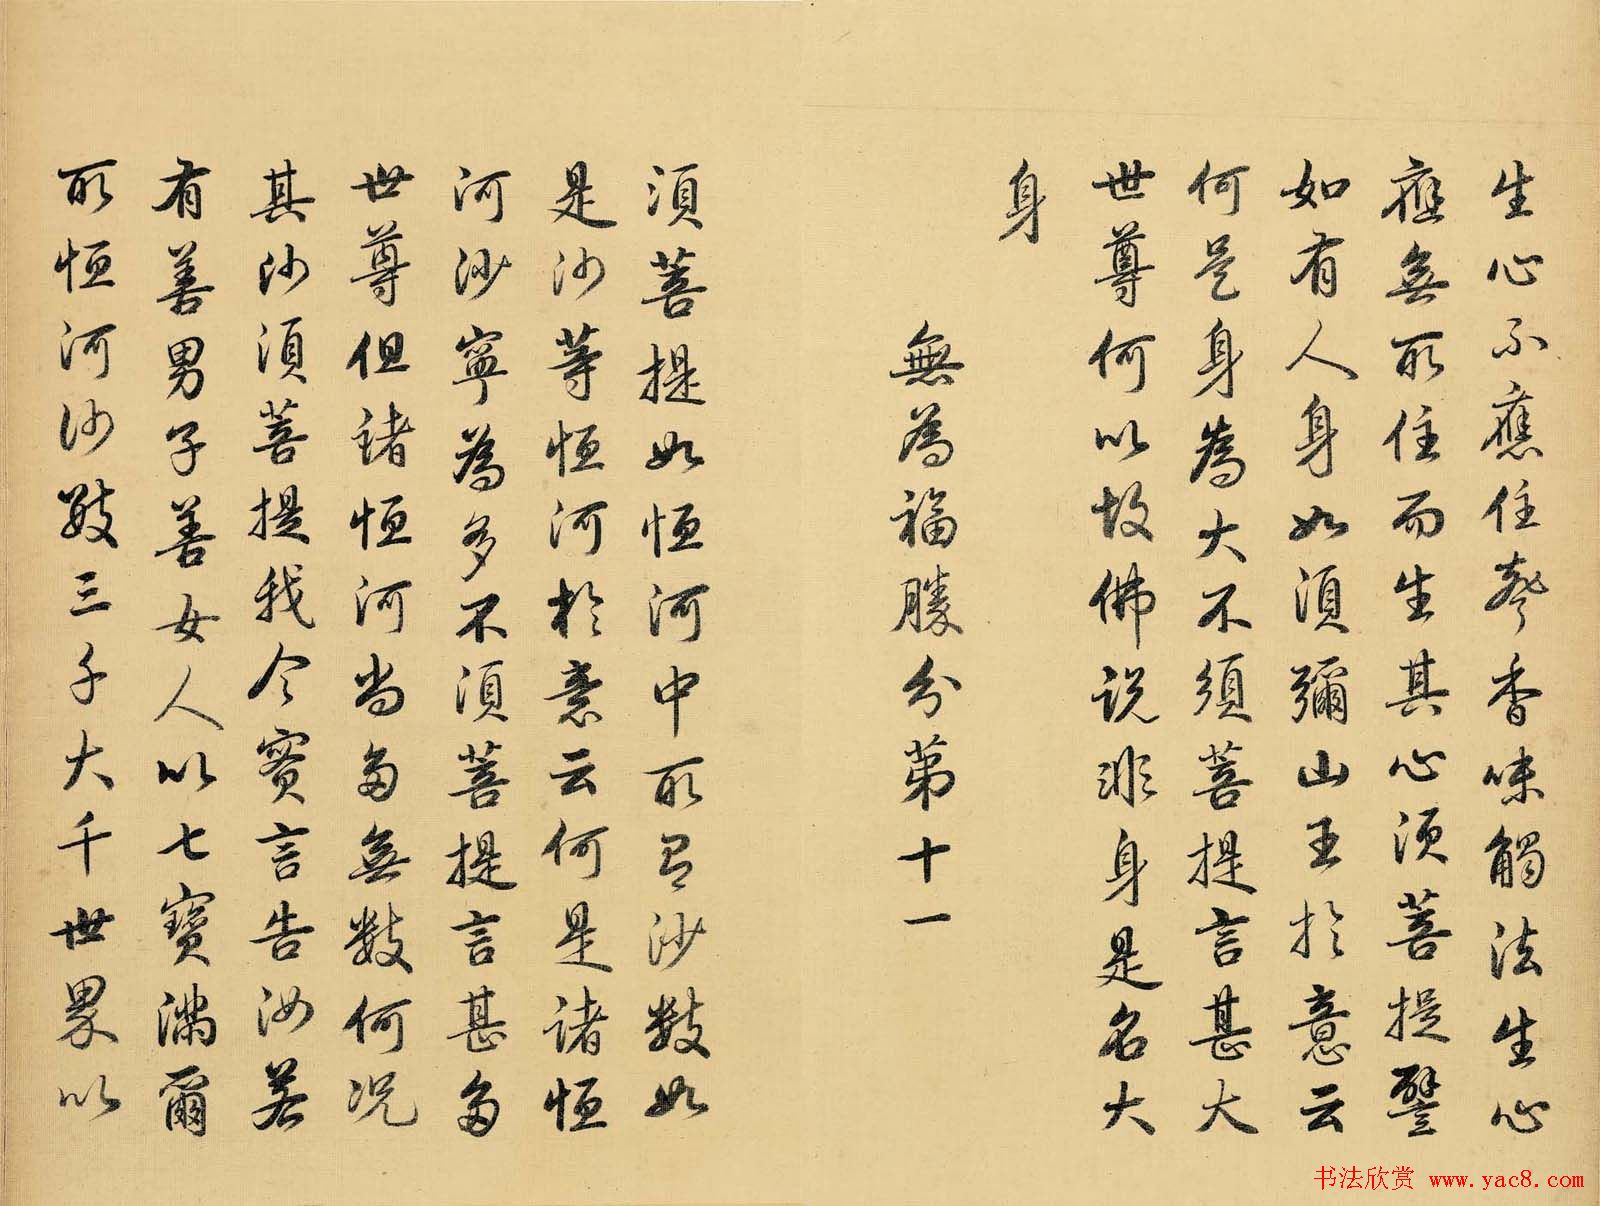 生心不應住聲香味觸法生心
應無所住而生其心須菩提譬
如有人身如須彌山王於意云
何是身為大不須菩提言甚大
世尊何以故佛說非身是名大
身
無為福勝分第十一
須菩提如恒河中所有沙數如
是沙等恒河於意云何是諸恒
河沙寧為多不須菩提言甚多
世尊但諸恒河尚多無數何况
其沙須菩提我今實言告汝若
有善男子善女人以七寶滿爾
所恒河沙數三千大千世界以
书法欣赏 www.yac8.com